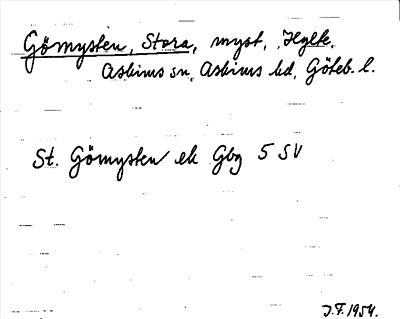 Gömysten, Stora, myst, Hylte,
Askims sn, Askims hd, Göteb. l.
St. Gömysten ek Gbg 5 SV
J.F. 1954.